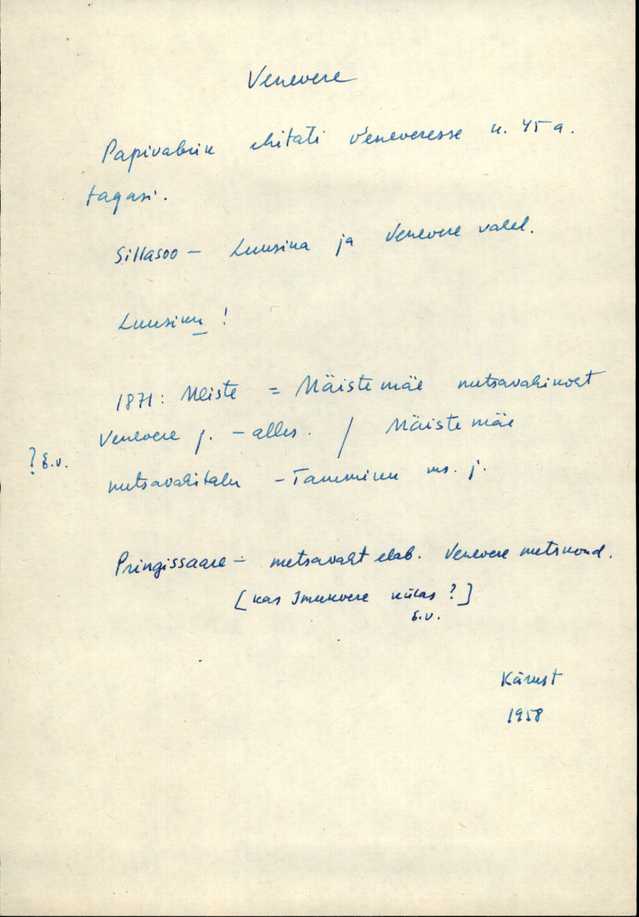 Venevere
Papivabrik ehitati Veneveresse u. 45 a.
tagasi.
Sillasoo – Luusika ja Venevere vahel.
Luusiku !
1871: Meiste = Mäistemäe metsavahikoht
Venevere j. – alles. / Mäistemäe
? E.V.
metsavahitalu – Tammiku ms. j.
Pringissaare – metsavaht elab. Venevere metskond.
[kas Imukvere külas ?]
E.V.
Kärust
1958